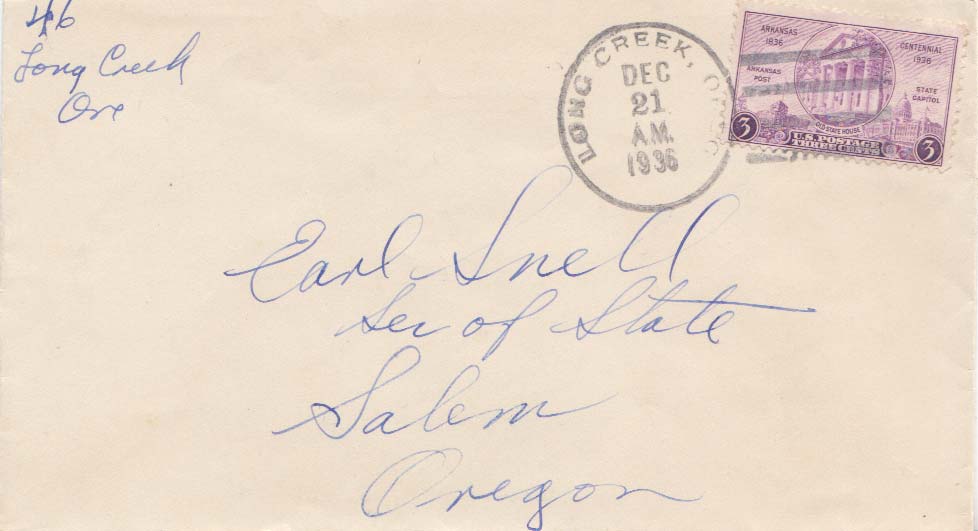 46
Long Creek
Ore
LONG CREEK, OREG
DEC
21
A.M.
1936
ARKANSAS
1836
CENTENNIAL
1936
ARKANSAS
POST
STATE
CAPITOL
OLD STATE HOUSE
3
U.S. POSTAGE
THREE CENTS
3
Earl Snell
Sec of State
Salem
Oregon